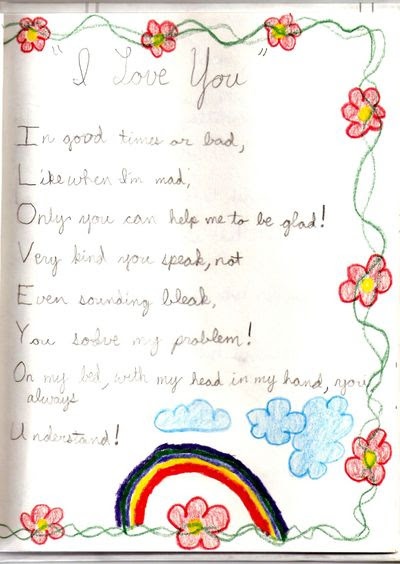 "I Love You"
In good times or bad,
Like when I'm mad,
Only you can help me to be glad!
Very kind you speak, not
Even sounding bleak,
You solve my problem!
On my bed, with my head in my hand, you
always
Understand!